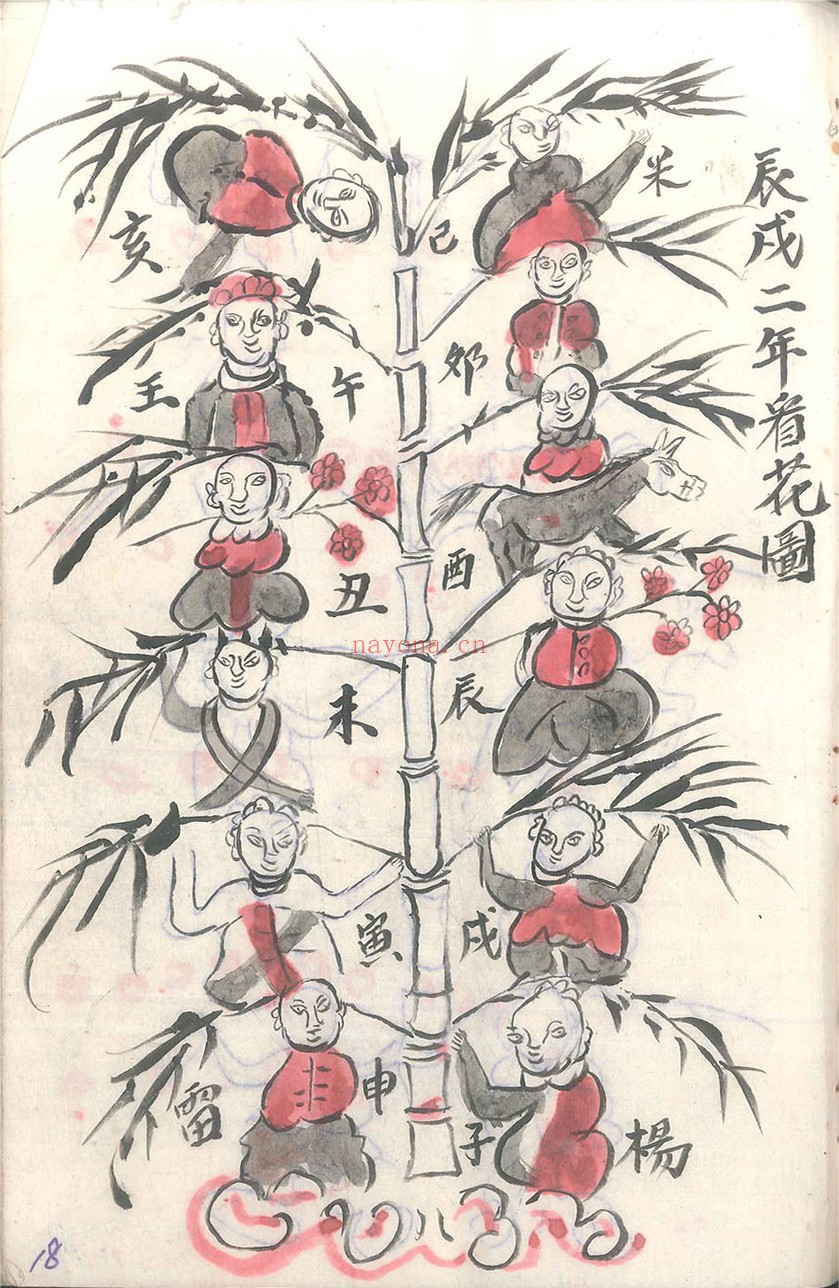 辰戌二年看花圖
米
亥
己
王
午
卯
丑
酉
未
辰
寅
戌
雷
申
子
楊
nayona.cn
18